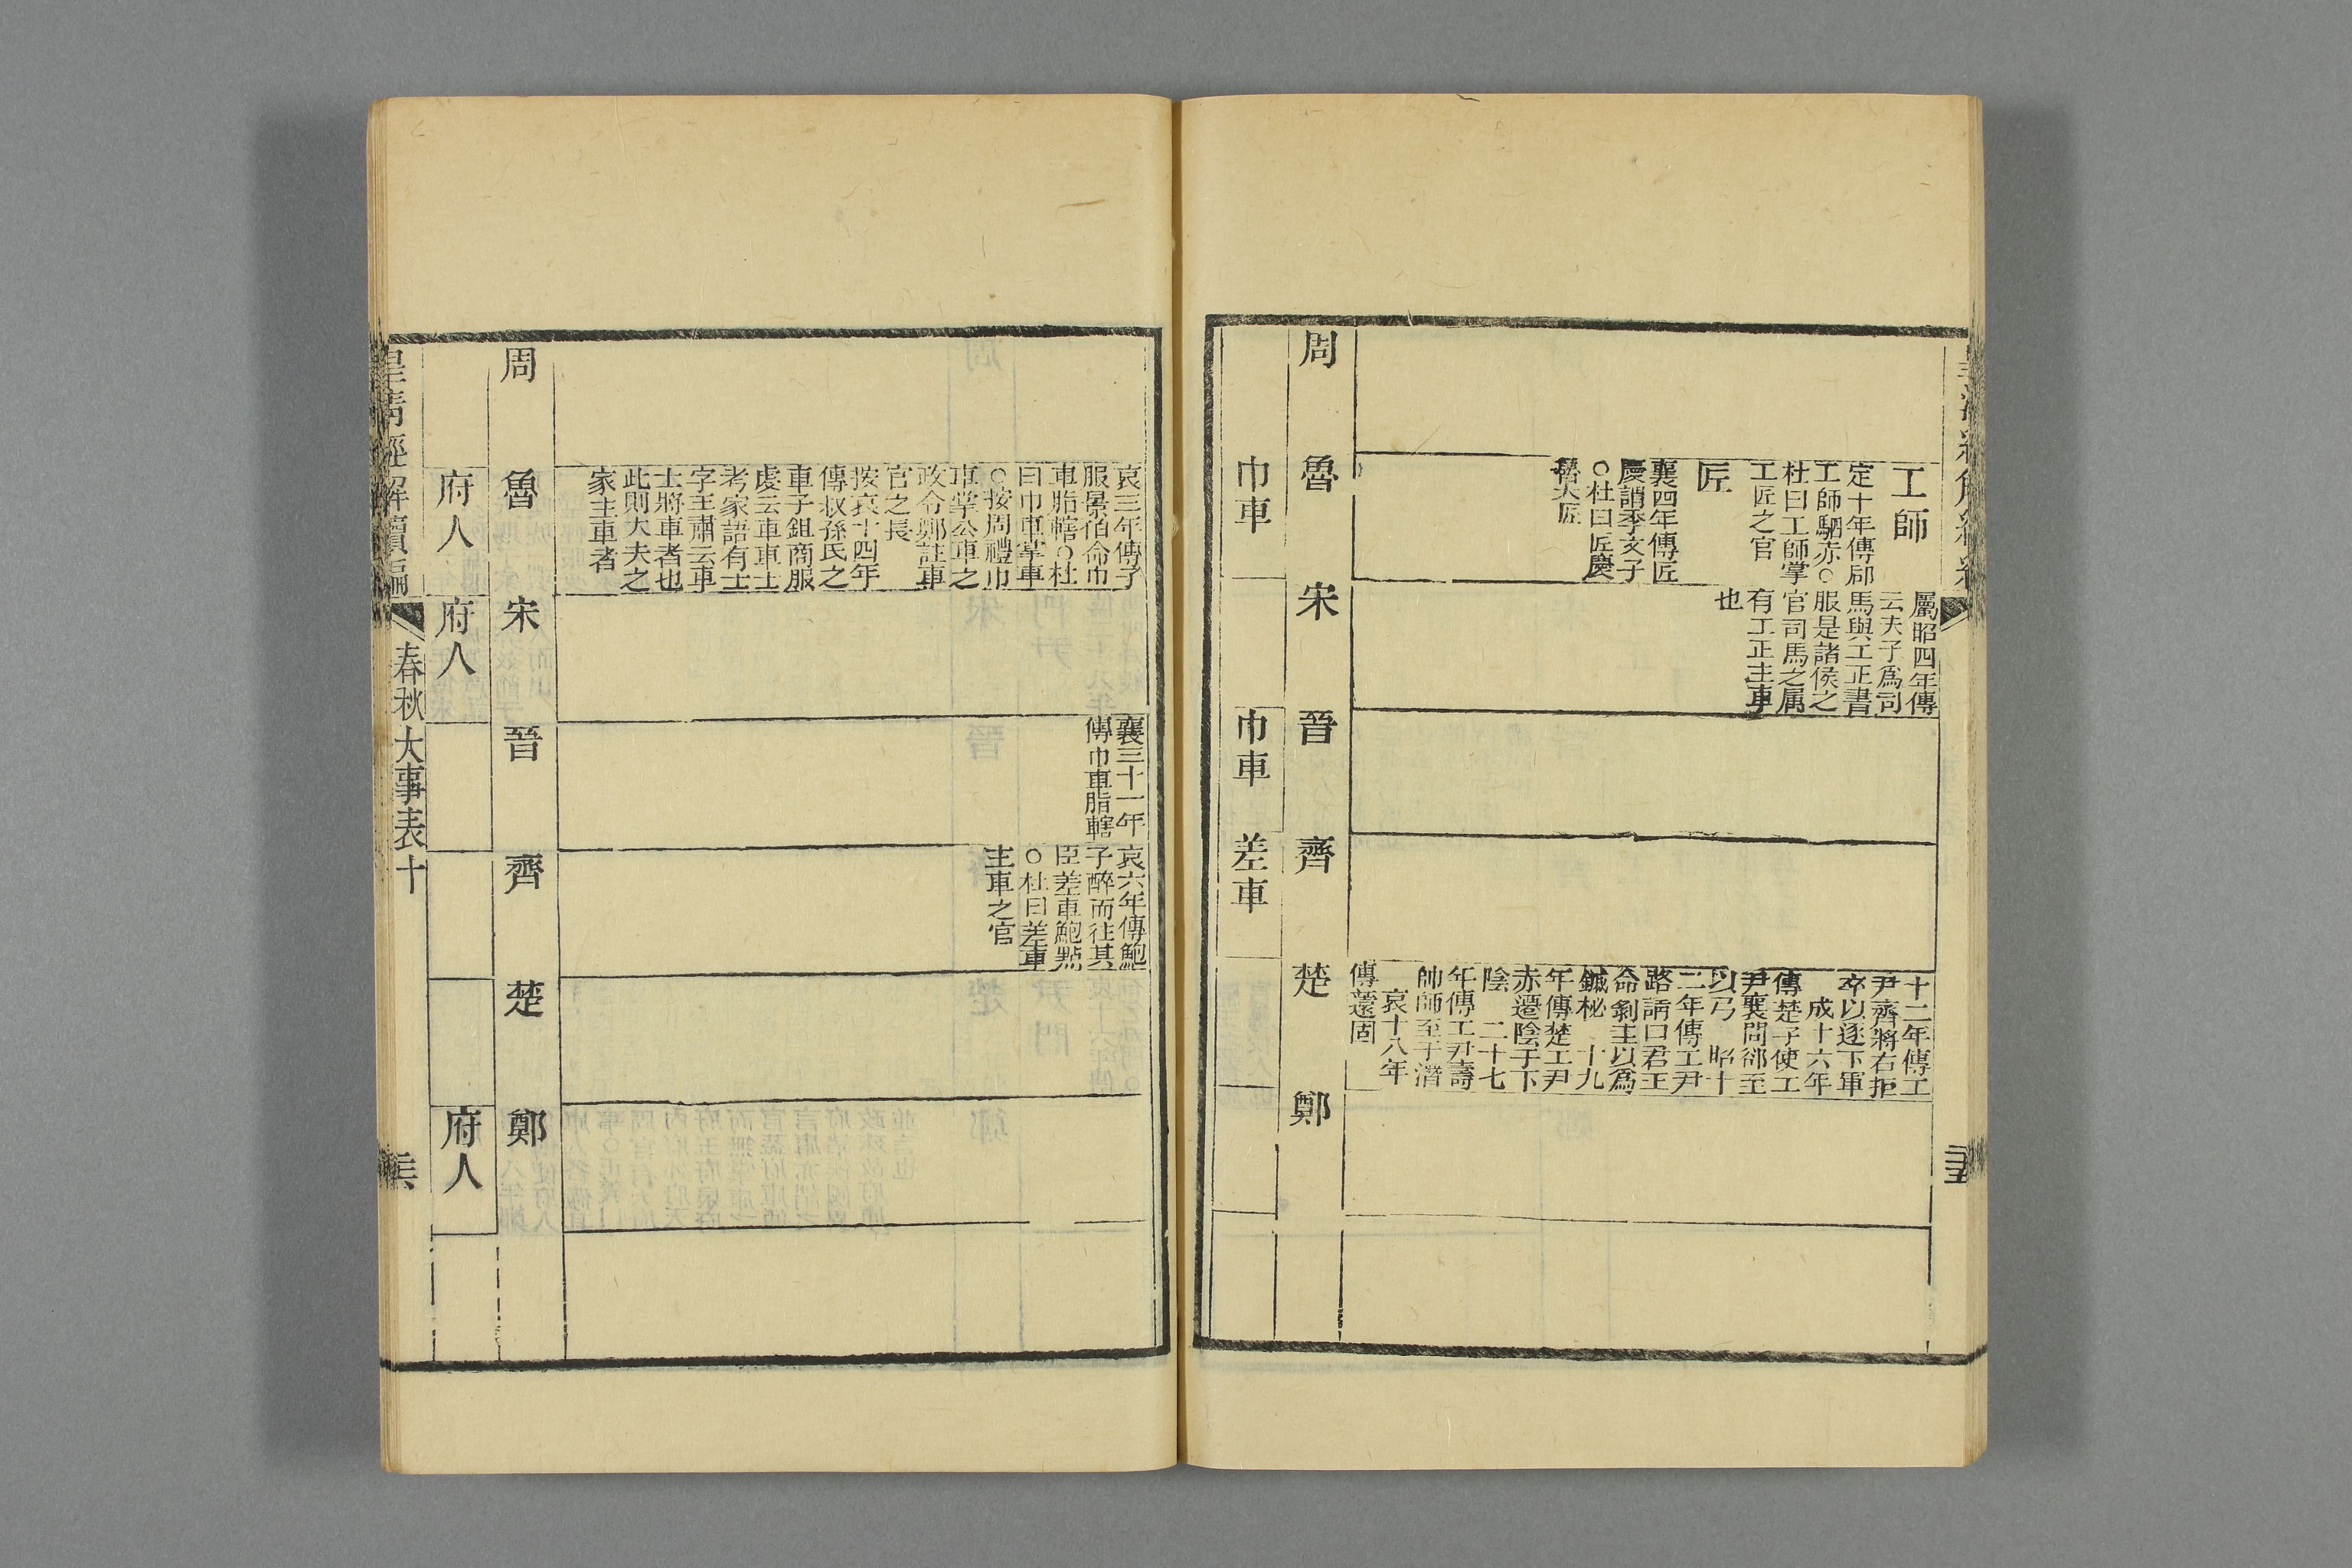 工師
定十年傳郈
工師駟赤○
杜曰工師掌
工匠之官
匠
襄四年傳匠
慶謂季文子
○杜曰匠慶
魯大匠
屬昭四年傳
云夫子爲司
馬與工正書
服是諸侯之
官司馬之屬
有工正主車
也
十二年傳工
尹齊將右拒
卒以逐下軍
成十六年
傳楚子使工
尹襄問郤至
以弓 昭十
二年傳工尹
路請曰君王
命剝圭以爲
鏚柲 十九
年傳楚工尹
赤遷陰于下
陰 二十七
年傳工尹壽
帥師至于潛
哀十八年
傳薳固
周
魯
宋
晉
齊
楚
鄭
巾車
巾車
差車
三十五
哀三年傳子
服景伯命巾
車脂轄○杜
曰巾車掌車
○按周禮巾
車掌公車之
政令鄭註車
官之長
按哀十四年
傳叔孫氏之
車子鉏商服
虔云車車士
考家語有士
字王肅云車
士將車者也
此則大夫之
家主車者
襄三十一年
傳巾車脂轄
哀六年傳鮑
子醉而往其
臣差車鮑點
○杜曰差車
主車之官
周
魯
宋
晉
齊
楚
鄭
府人
府人
府人
皇清經解續編
春秋大事表十